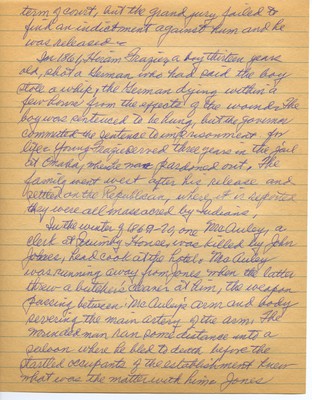 term of court, but the grand jury failed to
find an indictment against him and he
was released.
In 1861, Hiram Frazier, a boy thirteen years
old, shot a German who had said the boy
stole a whip, the German dying within a
few hours from the effects of the wound. The
boy was sentenced to be hung, but the governor
commuted the sentence to imprisonment for
life. Young Frazier served three years in the jail
at Omaha, pardoned out. The
family went west after his release and
settled on the Republican, where it is reported
they were all massacred by Indians.
In the winter of 1869-70, one McAuley, a
clerk at Quimby House, was killed by John
Jones, head cook at the hotel. McAuley
was running away from Jones when the latter
threw a butcher's cleaver at him, the weapon
passing between McAuley's arm and body
severing the main artery of the arm. The
wounded man ran some distance into a
saloon where he bled to death before the
startled occupants of the establishment knew
what was the matter with him. Jones